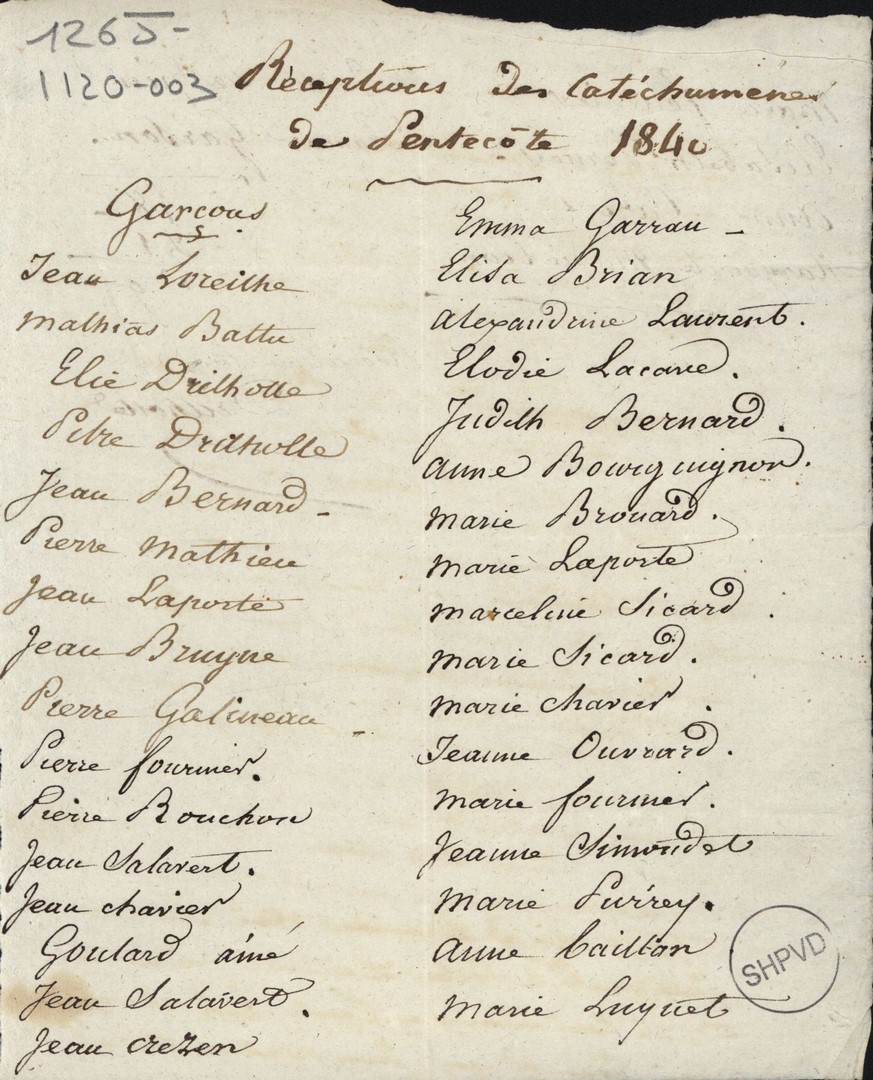 1265-
1120-003
Réceptions des Catéchumènes
de Pentecôte 1840
Garçons
Jean Loreilhe
Mathias Battu
Elie Drilholle
Pierre Drilholle
Jean Bernard -
Pierre Mathieu
Jean Laporte
Jean Bruyne
Pierre Galineau -
Pierre fournier.
Pierre Rouchon
Jean Salavert.
Jean chavier
Goulard aîné
Jean Salavert.
Jean crezen
Emma Garrau -
Elisa Brian
Alexandrine Laurent.
Elodie Lacave.
Judith Bernard.
Anne Bourguignon.
Marie Brouard.
Marie Laporte
Marceline Sicard.
Marie Sicard.
Marie chavier.
Jeanne Ouvrard.
Marie fournier.
Jeanne Simondet
Marie Purrey.
Anne Caillon
Marie Luquet
SHPVD